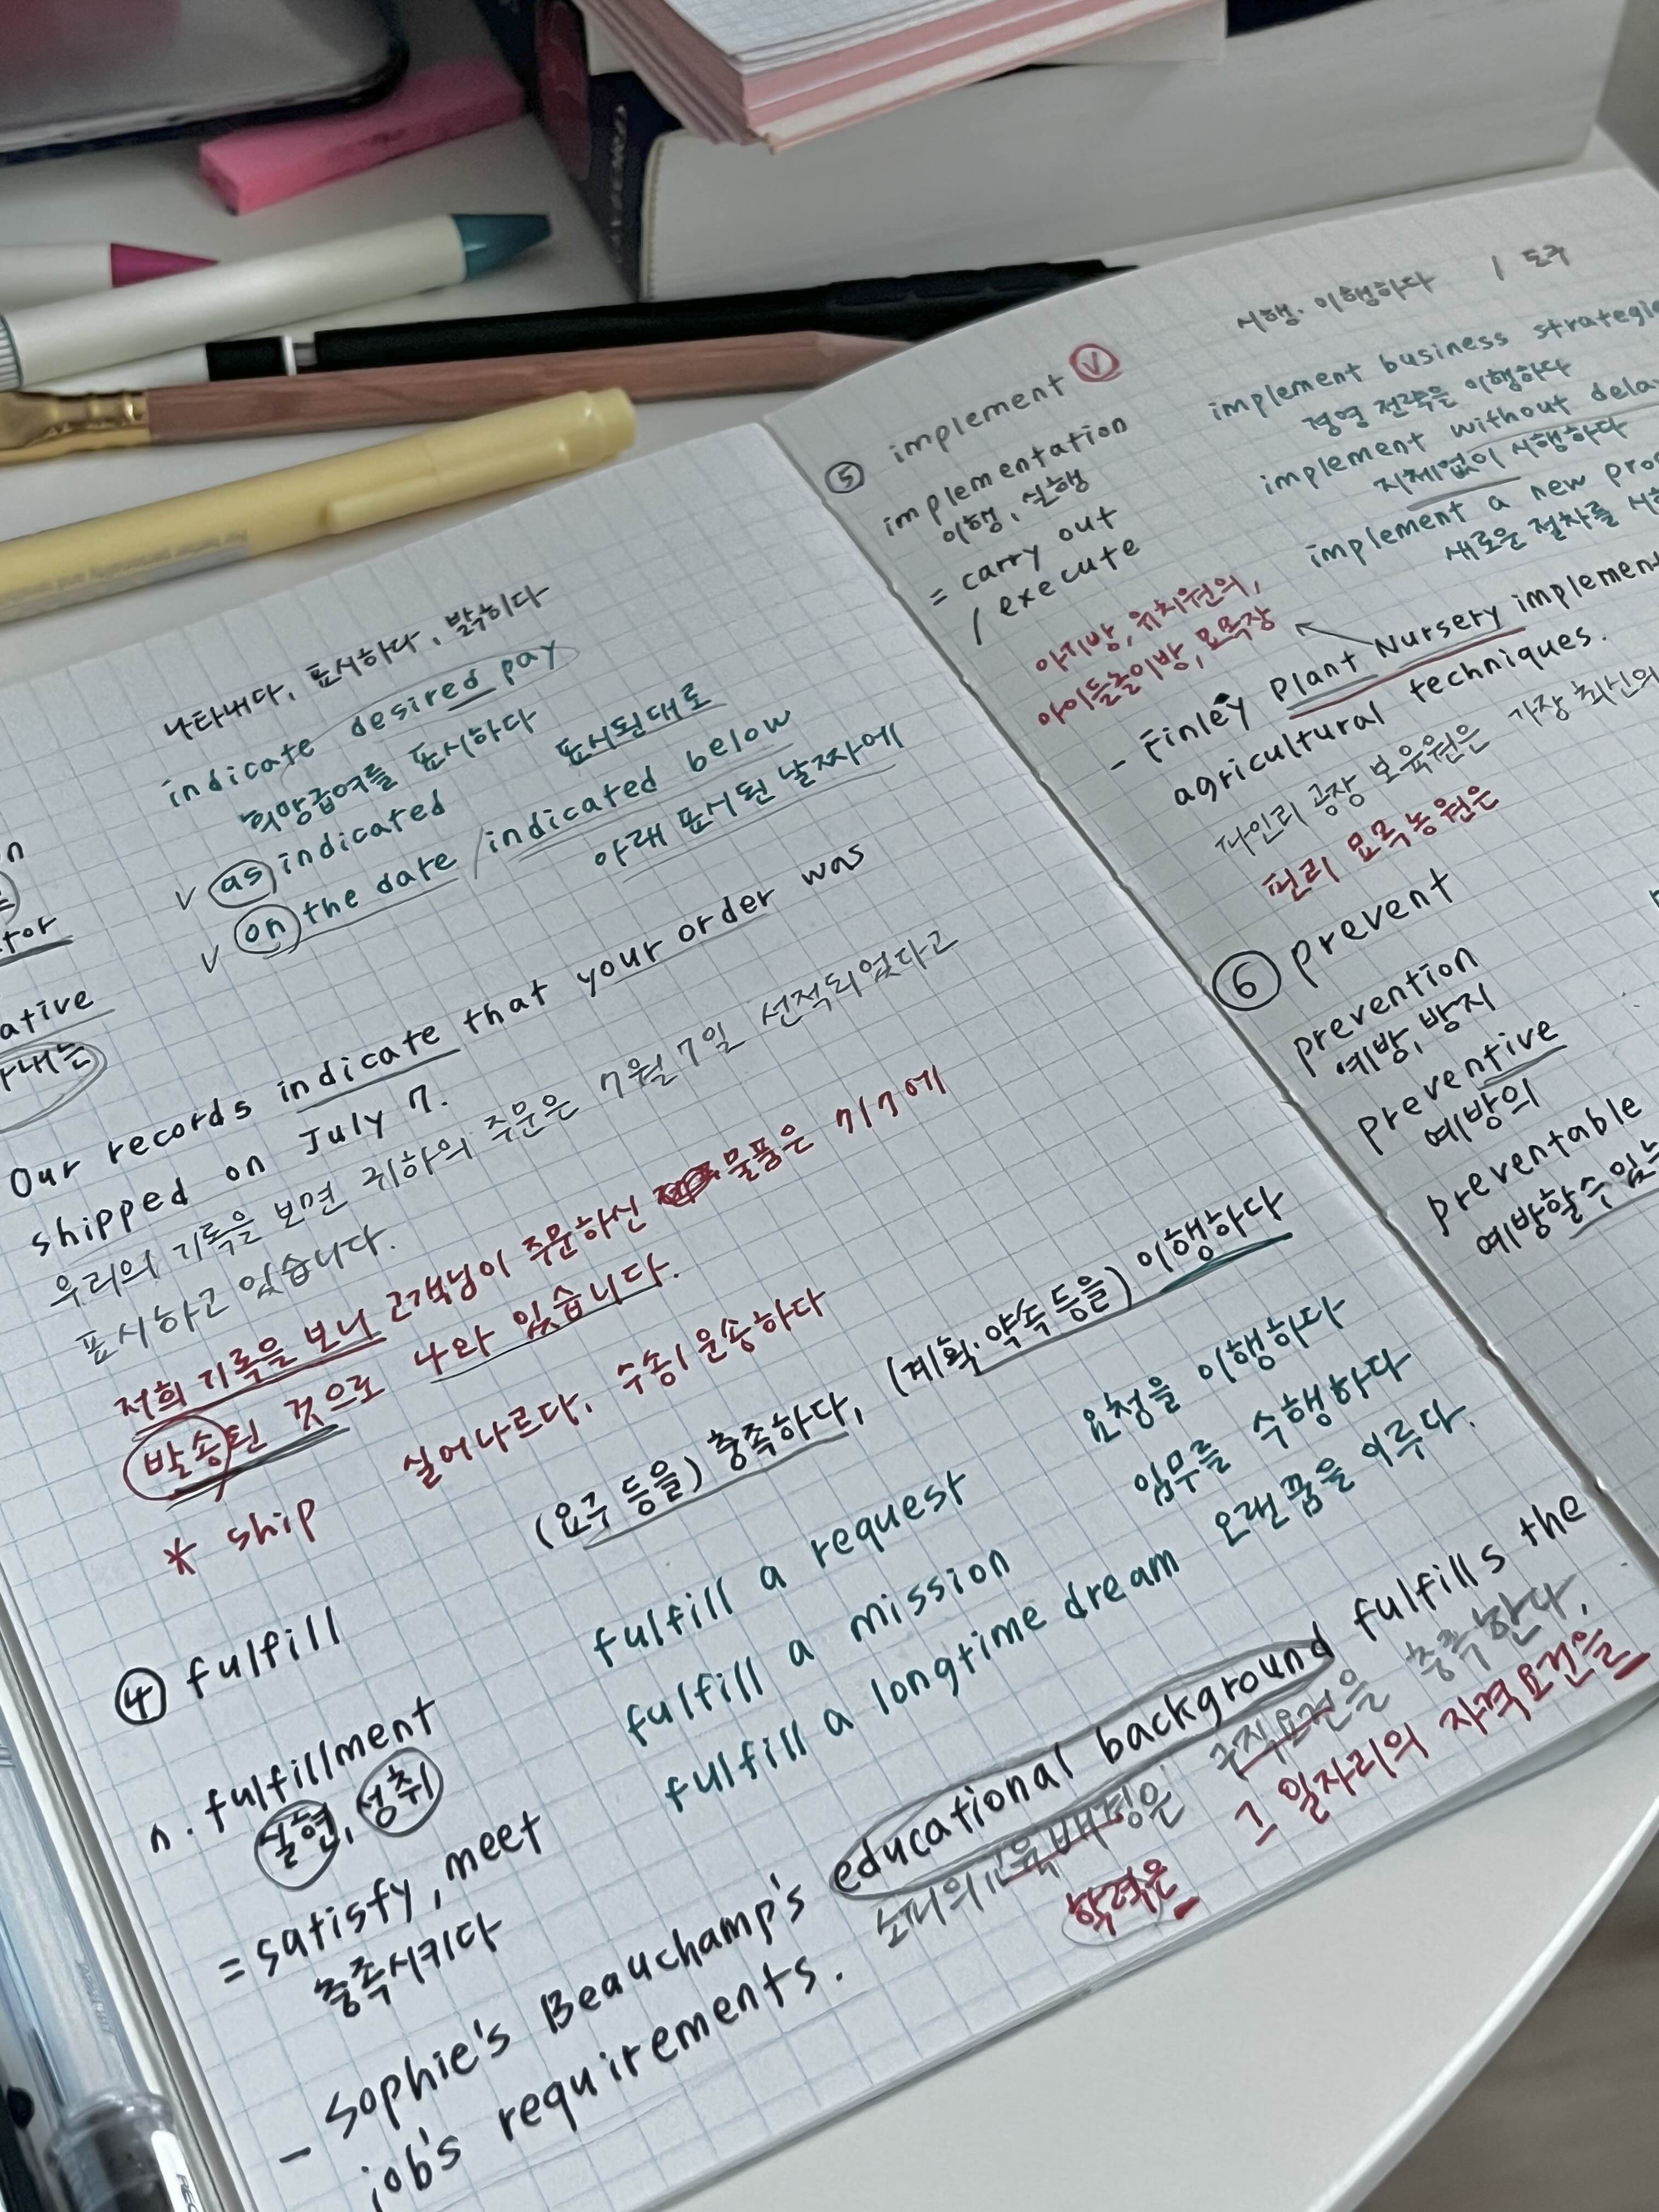 나타내다, 표시하다, 밝히다
indicate desired pay
희망급여를 표시하다
as indicated 표시된대로
on the date / indicated below
아래 표시된 날짜에
ative
Our records indicate that your order was
shipped on July 7.
우리의 기록을 보면 귀하의 주문은 7월 7일 선적되었다고
표시하고 있습니다.
저희 기록을 보니 고객님이 주문하신 물품은 7/7에
발송된 것으로 나와 있습니다.
* ship 실어나르다, 수송/운송하다
④ fulfill (요구 등을) 충족하다, (계획·약속 등을) 이행하다
n. fulfillment
실현, 성취
= satisfy, meet
충족시키다
fulfill a request 요청을 이행하다
fulfill a mission 임무를 수행하다
fulfill a longtime dream 오랜 꿈을 이루다.
- Sophie's Beauchamp's educational background fulfills the
job's requirements.
소피의 교육배경은 구직요건을 충족한다.
학력은 그 일자리의 자격요건을
⑤ implement V 시행·이행하다 / 도구
implementation
이행, 실행
= carry out
/ execute
implement business strategie
경영 전략을 이행하다
implement without dela
지체없이 시행하다
implement a new pro
새로운 절차를 시
아기방, 유치원의,
아이들놀이방, 묘목장
- Finley Plant Nursery implement
agricultural techniques.
파인리 공장 보육원은 가장 최신의
핀리 묘목농원은
⑥ prevent
prevention
예방, 방지
preventive
예방의
preventable
예방할수있는